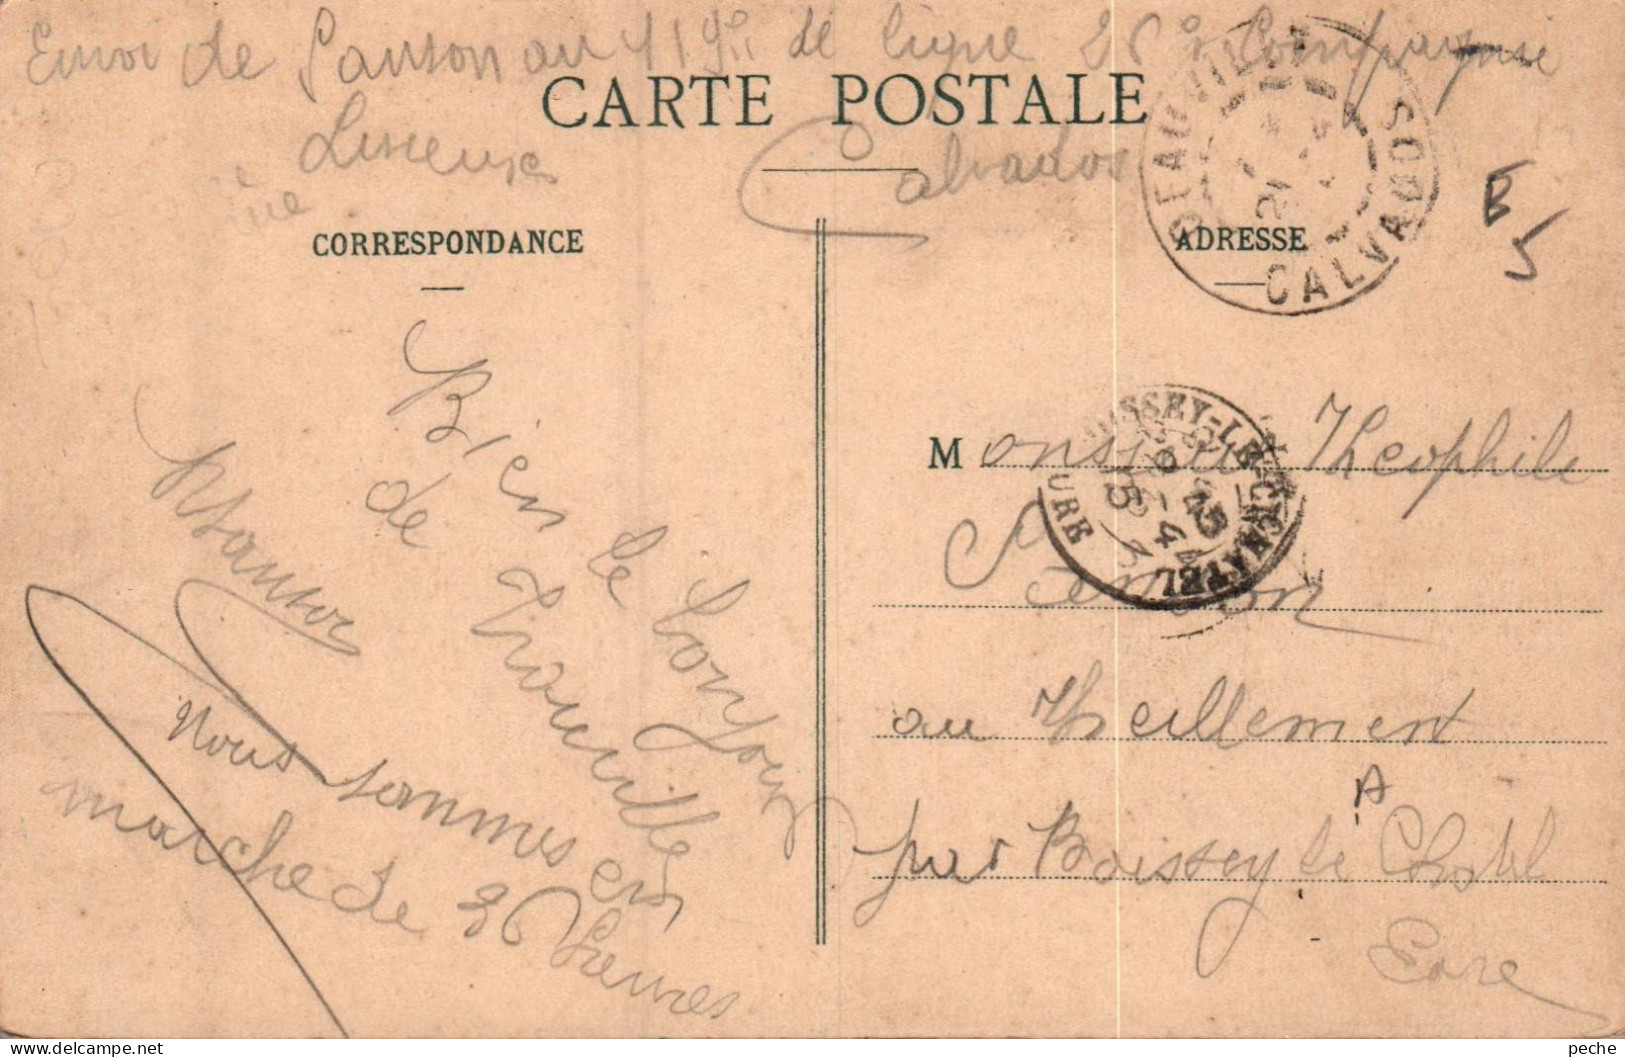 Envoi de Sanson au 119e de ligne 26e Compagnie
Lisieux
Calvados
CARTE POSTALE
CORRESPONDANCE
ADRESSE
DEAUVILLE
CALVADOS
21
B
5
Bien le bonjour
de Trouville
Sanson
Nous sommes en
marche de 36 heures
BOISSEY-LE-CHATEL
EURE
Monsieur Theophile
Sanson
au Theillement
par Boissey le Chatel
Eure
peche